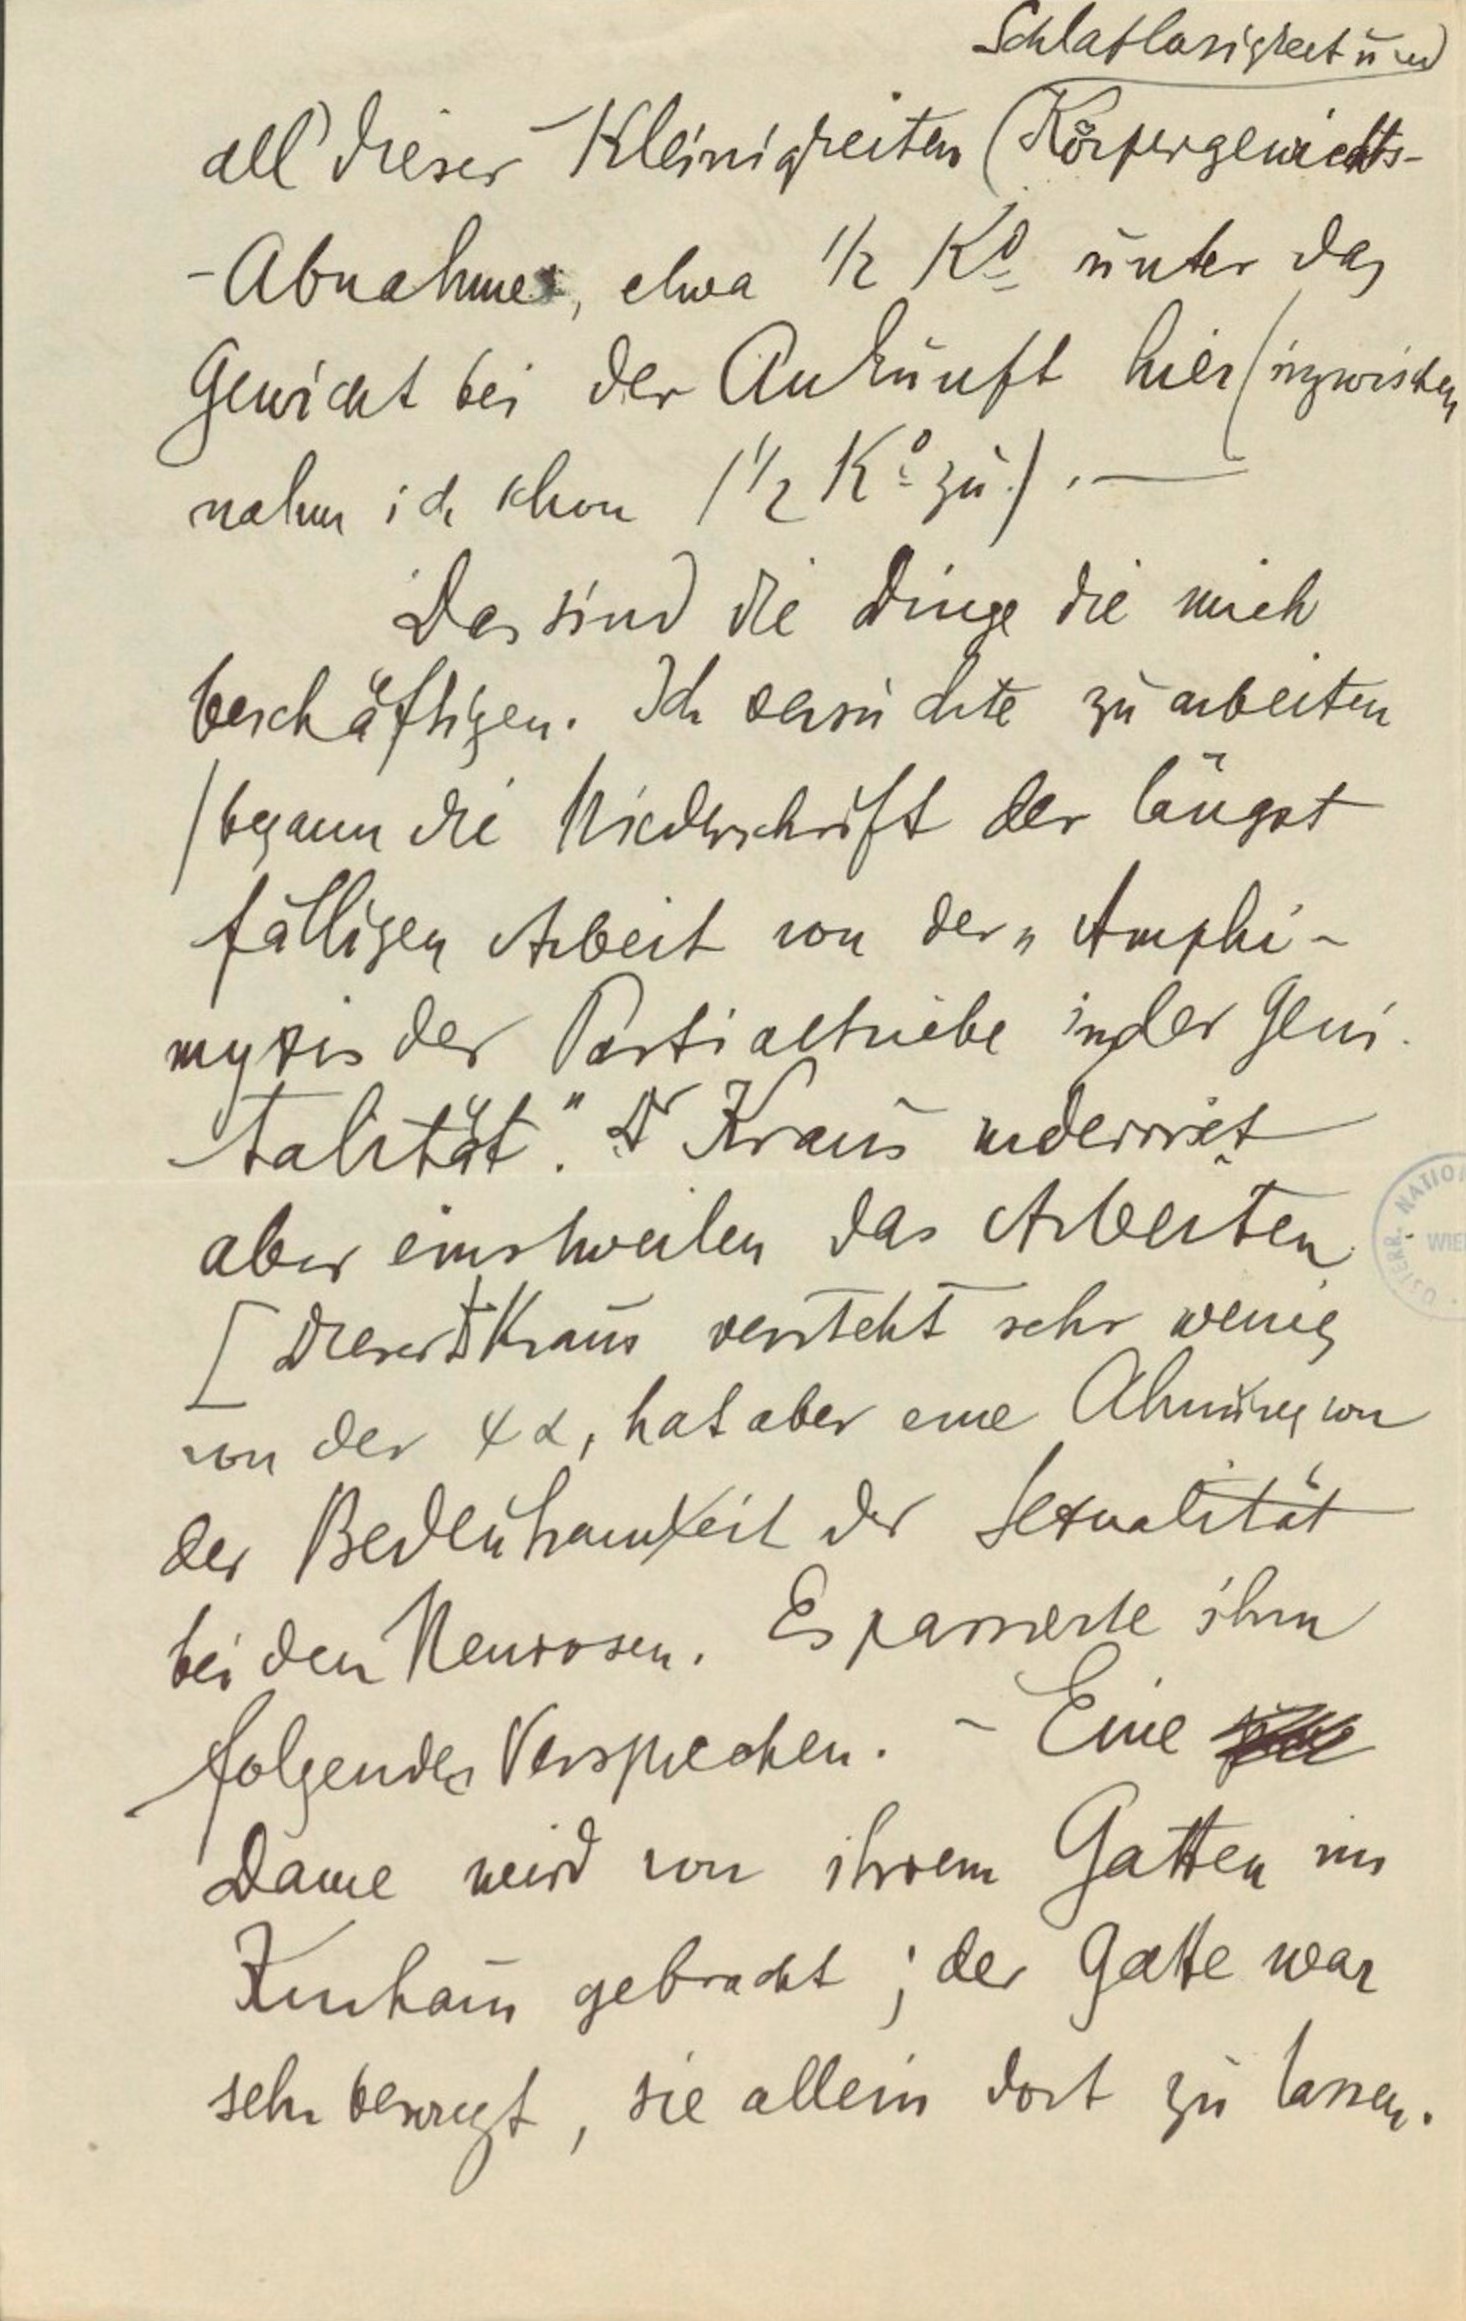 Schlaflosigkeit und
all' dieser Kleinigkeiten (Körpergewichts-
-Abnahme, etwa 1/2 Ko unter das
Gewicht bei der Ankunft hier (inzwischen
nahm ich schon 1 1/2 Ko zu.) . —
Das sind die Dinge die mich
beschäftigen. Ich versuchte zu arbeiten
/begann die Niederschrift der längst
fälligen Arbeit von der „Amphi-
myxis der Partialtriebe in der Geni-
talität." Dr Kraus widerriet
aber einstweilen das Arbeiten.
[Dieser Dr Kraus versteht sehr wenig
von der ψα, hat aber eine Ahnung von
der Bedeutsamkeit der Sexualität
bei den Neurosen. Es passierte ihm
folgendes Versprechen. - Eine
Dame wird von ihrem Gatten ins
Kurhaus gebracht; der Gatte war
sehr besorgt, sie allein dort zu lassen.
ÖSTERR. NATIO
WIE